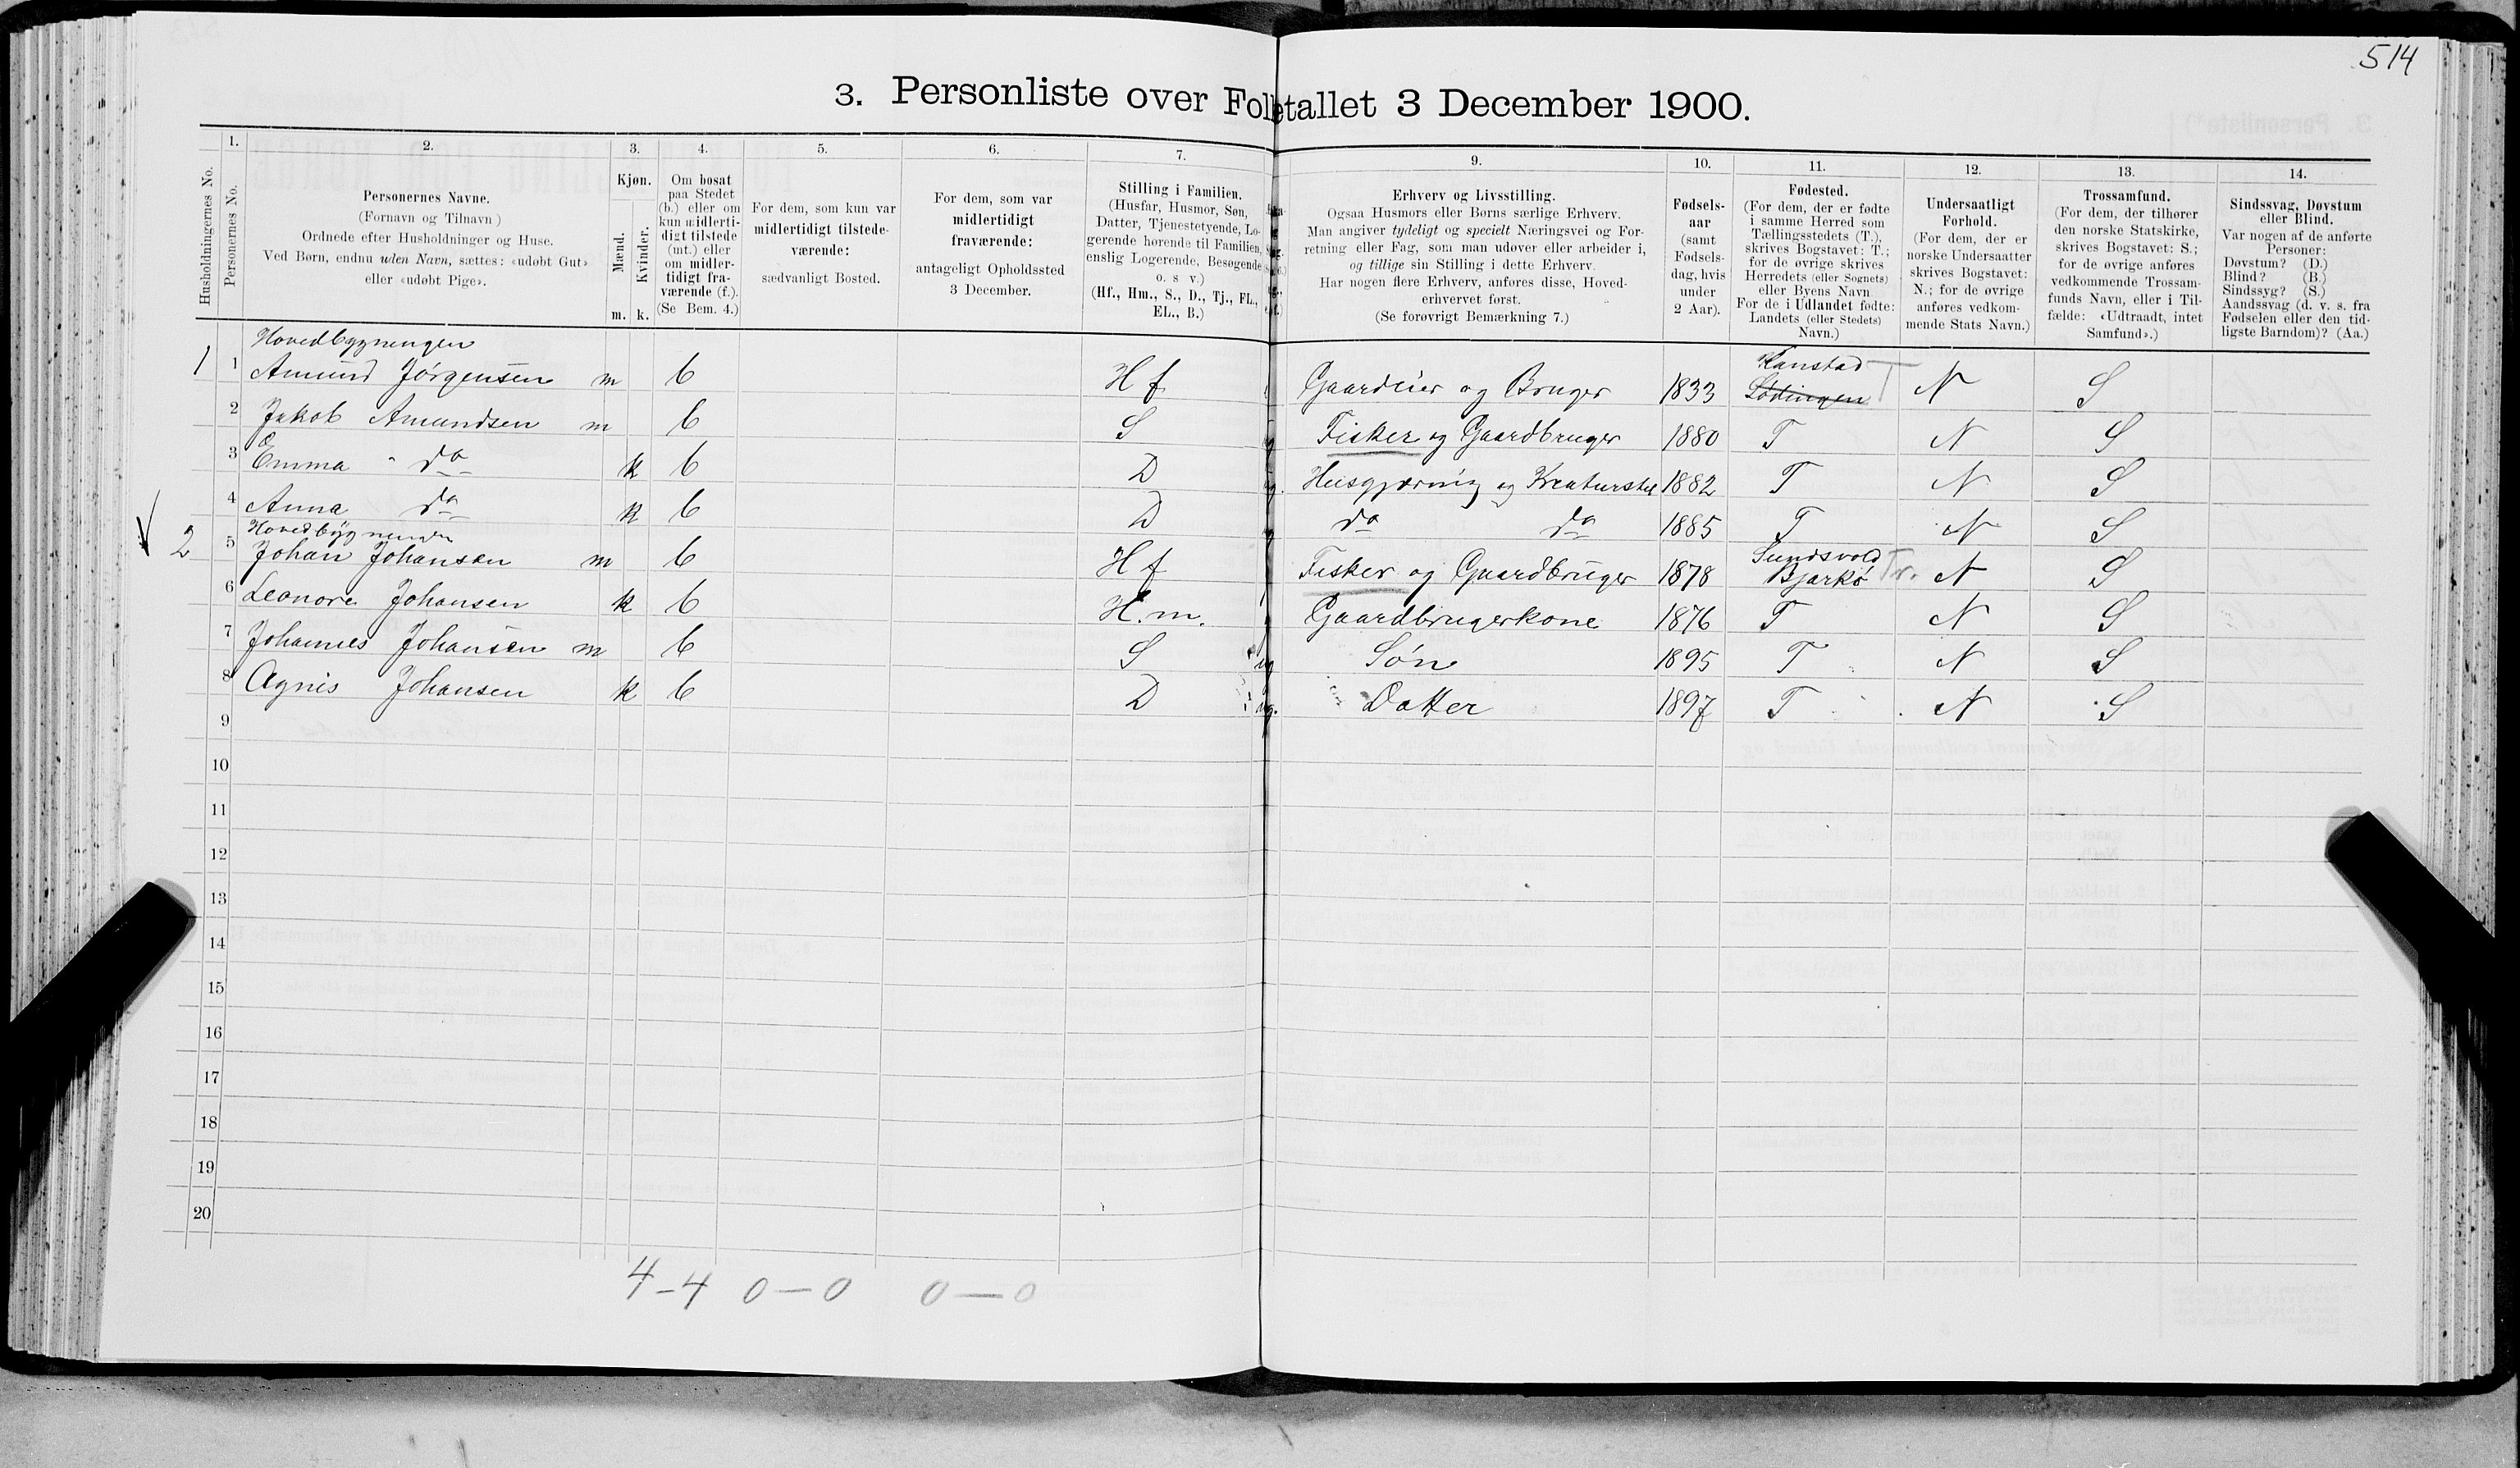 514
3. Personliste over Folketallet 3 December 1900.
Husholdningernes No.
1.
Personernes No.
2.
Personernes Navne.
(Fornavn og Tilnavn)
Ordnede efter Husholdninger og Huse.
Ved Børn, endnu uden Navn, sættes: «udøbt Gut»
eller «udøbt Pige».
3.
Kjøn.
Mænd.
Kvinder.
m. k.
4.
Om bosat
paa Stedet
(b.) eller om
kun midlerti-
digt tilstede
(mt.) eller
om midler-
tidigt fra-
værende (f.).
(Se Bem. 4.)
5.
For dem, som kun var
midlertidigt tilstede-
værende:
sædvanligt Bosted.
6.
For dem, som var
midlertidigt
fraværende:
antageligt Opholdssted
3 December.
7.
Stilling i Familien.
(Husfar, Husmor, Søn,
Datter, Tjenestetyende, Lo-
gerende hørende til Familien,
enslig Logerende, Besøgende
o. s v.)
(Hf., Hm., S., D., Tj., FL.,
EL., B.)
9.
Erhverv og Livsstilling.
Ogsaa Husmors eller Børns særlige Erhverv.
Man angiver tydeligt og specielt Næringsvei og For-
retning eller Fag, som man udøver eller arbeider i,
og tillige sin Stilling i dette Erhverv.
Har nogen flere Erhverv, anføres disse, Hoved-
erhvervet først.
(Se forøvrigt Bemærkning 7.)
10.
Fødsels-
aar
(samt
Fødsels-
dag, hvis
under
2 Aar).
11.
Fødested.
(For dem, der er fødte
i samme Herred som
Tællingsstedets (T.),
skrives Bogstavet: T.;
for de øvrige skrives
Herredets (eller Sognets)
eller Byens Navn
For de i Udlandet fødte:
Landets (eller Stedets)
Navn.)
12.
Undersaatligt
Forhold.
(For dem, der er
norske Undersaatter
skrives Bogstavet:
N.; for de øvrige
anføres vedkom-
mende Stats Navn.)
13.
Trossamfund.
(For dem, der tilhører
den norske Statskirke,
skrives Bogstavet: S.;
for de øvrige anføres
vedkommende Trossam-
funds Navn, eller i Til-
fælde: «Udtraadt, intet
Samfund».)
14.
Sindssvag, Døvstum
eller Blind.
Var nogen af de anførte
Personer:
Døvstum? (D.)
Blind? (B.)
Sindssyg? (S.)
Aandssvag (d. v. s. fra
Fødselen eller den tid-
ligste Barndom)? (Aa.)
Hovedbygningen
1 1 Amund Jörgensen m b Hf Gaardeier og Bruger 1833 Kanstad Lødingen T N S
2 Jakob Amundsen m b S g Fisker og Gaardbruger 1880 T N S
3 Emma " do k b D g. Husgjerning og Kreaturstel 1882 T N S
4 Anna do k b D g do do 1885 T N S
Hovedbygningen
2 5 Johan Johansen m b Hf Fisker og Gaardbruger 1878 Sundsvold Bjarkö Tr. N S
6 Leonore Johansen k b H.m. Gaardbrugerkone 1876 T N S
7 Johannes Johansen m b S ug Sön 1895 T N S
8 Agnis Johansen k b D ug. Datter 1897 T N S
9
10
11
12
13
14
15
16
17
18
19
20
4-4 0-0 0-0